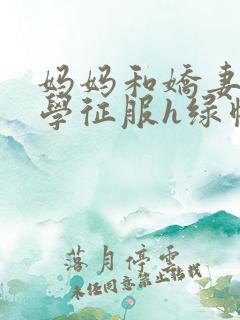 妈妈和嬌妻
學征服h绿
落月停雲
未经同意禁止转载